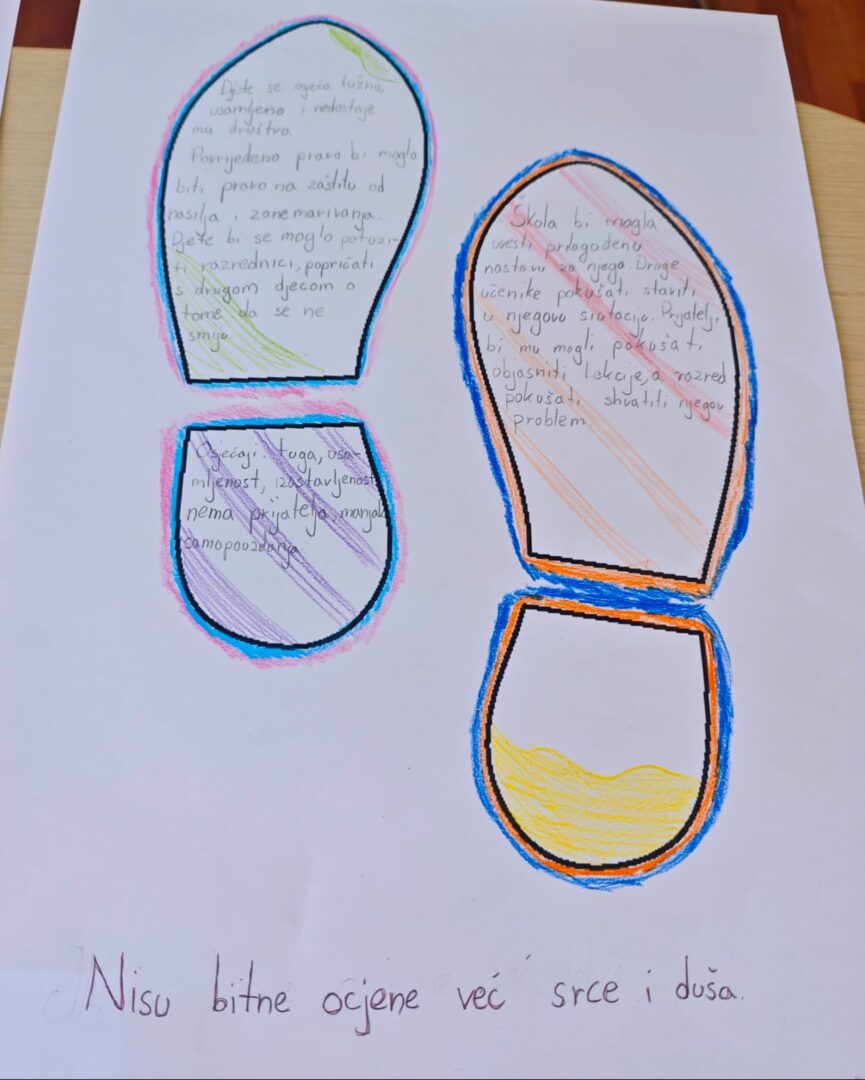 Dijete se osjeća tužno,
usamljeno i nedostaje
mu društva.
Povrijeđeno pravo bi moglo
biti pravo na zaštitu od
nasilja i zanemarivanja.
Dijete bi se moglo potuži-
ti razrednici, popričati
s drugom djecom o
tome da se ne
smiju.
Osjećaji: tuga, usa-
mljenost, izostavljenost,
nema prijatelja, manjak
samopouzdanja.
Škola bi mogla
uvesti prilagođenu
nastavu za njega. Druge
učenike pokušati staviti
u njegovu situaciju. Prijatelji
bi mu mogli pokušati
objasniti lekcije, a razred
pokušati shvatiti njegov
problem.
Nisu bitne ocjene već srce i duša.